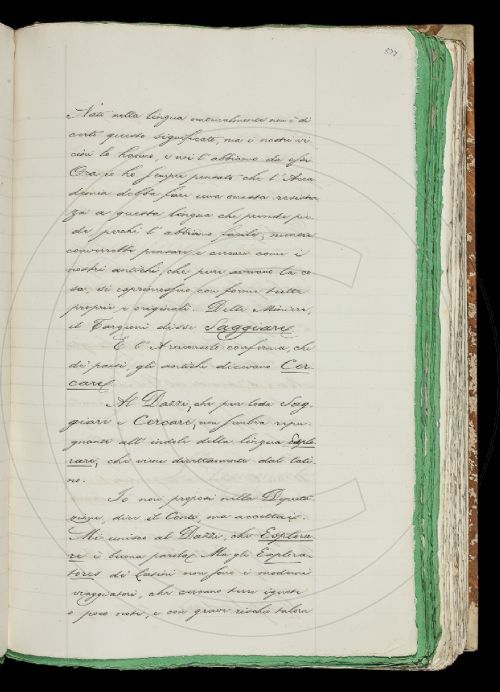 577
Nata nella lingua omericalmente non è di
certo questo significato, ma i nostri vi
cini lo hanno, e noi l'abbiamo da essi.
Ora io ho sempre pensato che l'Acca
demia debba fare una onesta resisten
za a questa lingua che prende pie
de perché l'abbiamo facile, mentre
converrebbe pensare e cercare come i
nostri antichi, che pure avevano la co
sa, si esprimessero con forme tutte
proprie e originali. Delle Miniere,
il Targioni disse Saggiare.
E l'Arciconsolo conferma, che
di paesi, gli antichi dicevano Cer-
care.
Al Dazzi, che pur loda Sag-
giare e Cercare, non sembra repu-
gnante all'indole della lingua Esplo
rare, che viene direttamente dal lati
no.
Io non proposi nella Deputa-
zione, dice il Conti, ma accettai.
Mi unisco al Dazzi, che Esplora-
re è buona parola. Ma gli Esplora-
tores dei Latini non sono i moderni
viaggiatori, che cercano terre ignote
o poco note, e con grave rischio talora